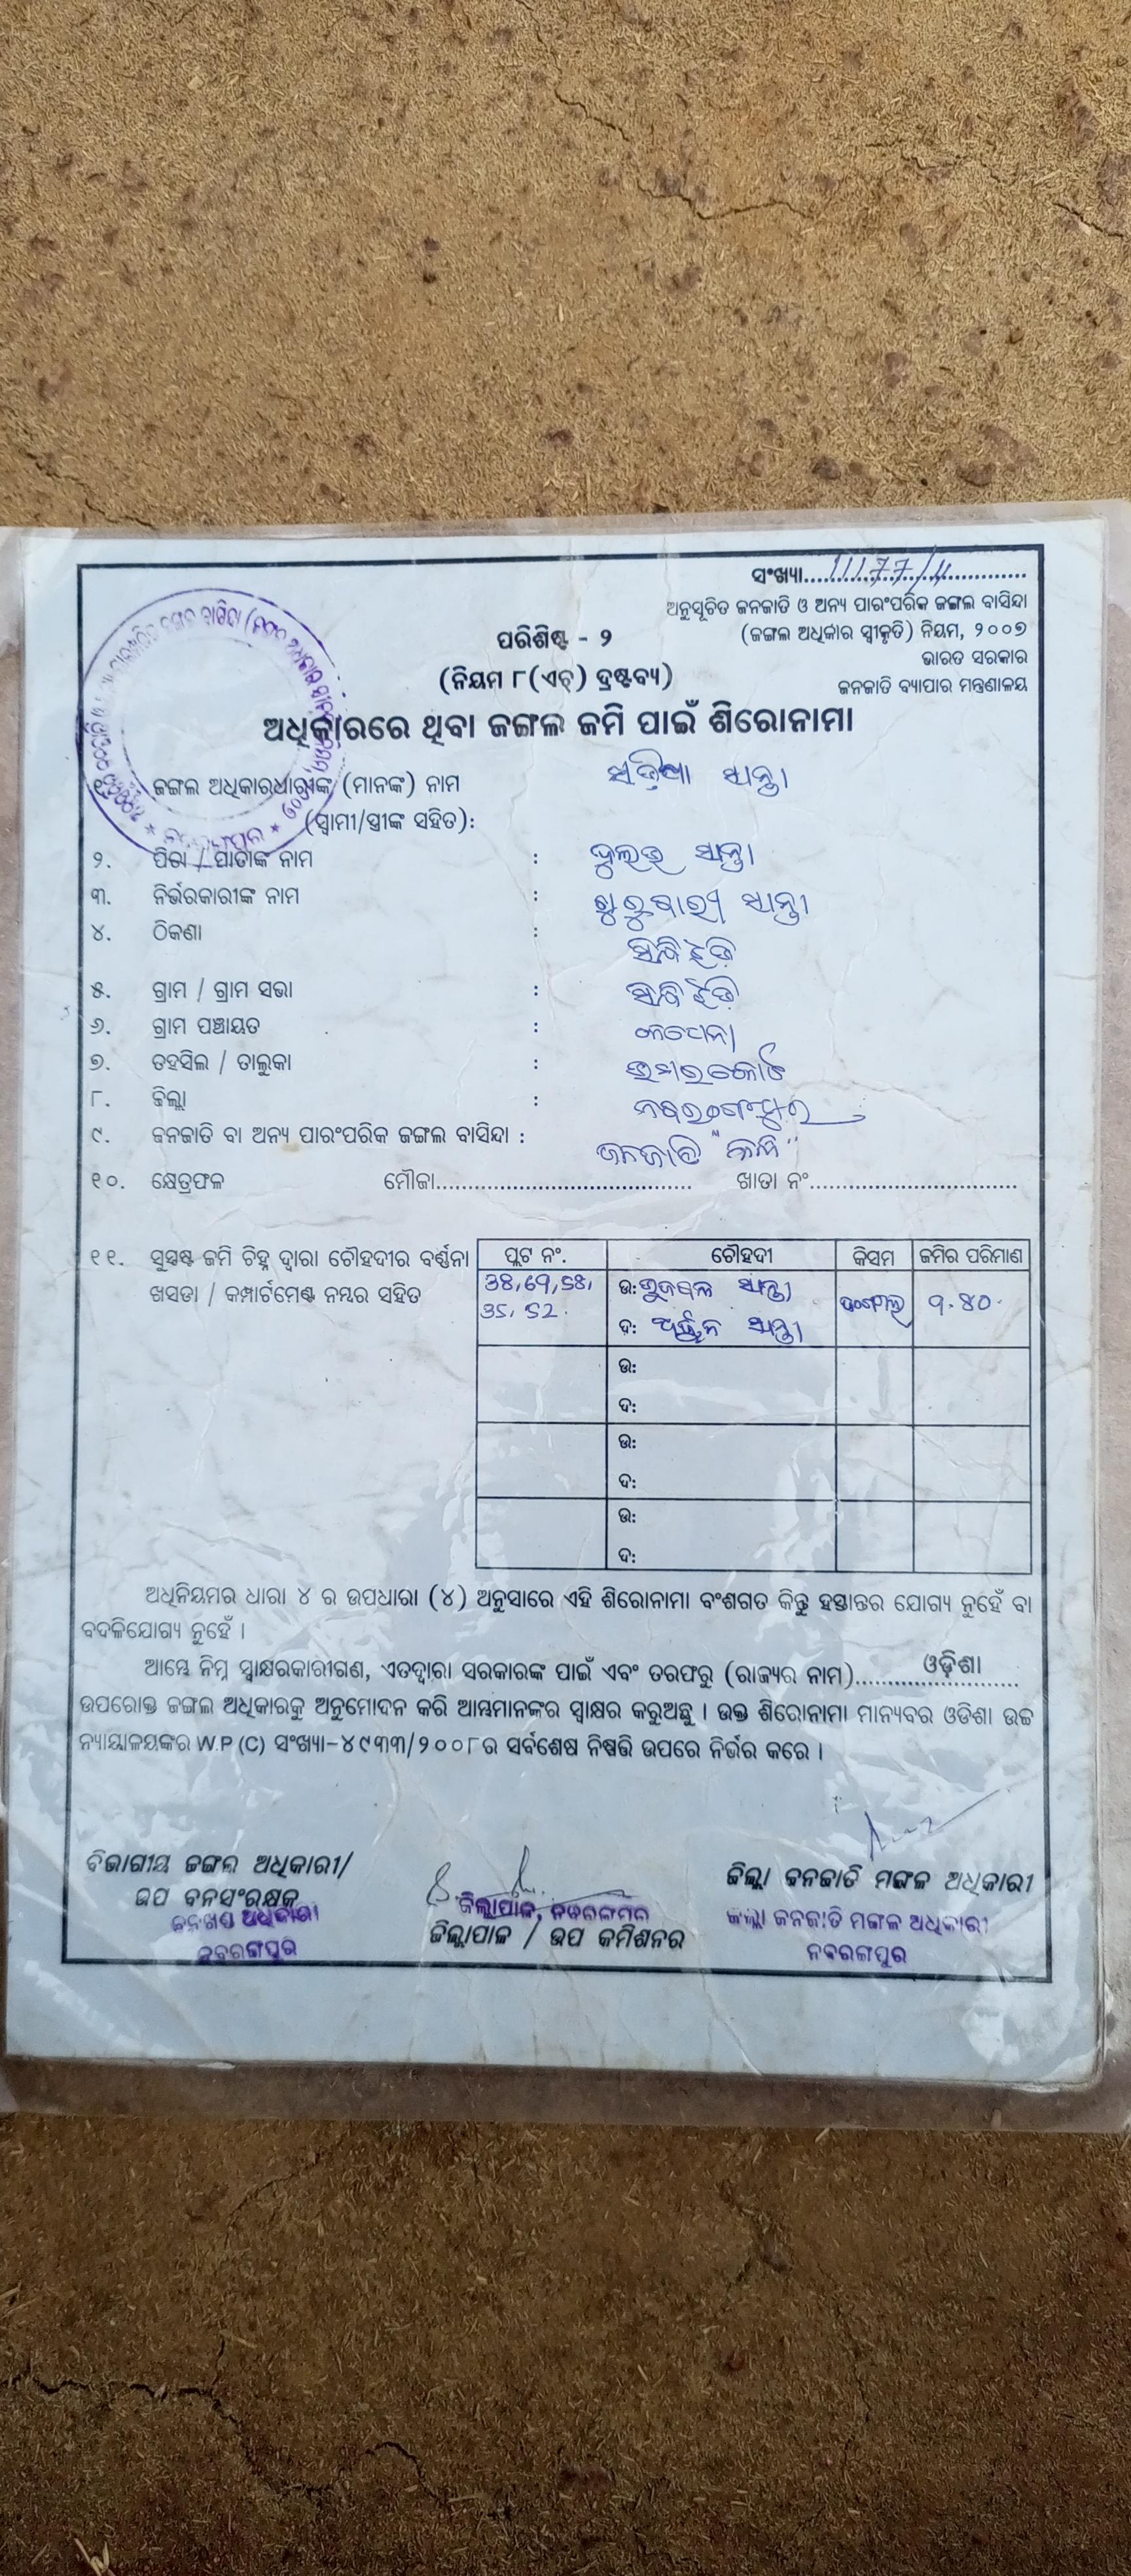 ସଂଖ୍ୟା.....11177/4.....
ଅନୁସୂଚିତ ଜନଜାତି ଓ ଅନ୍ୟ ପାରଂପରିକ ଜଙ୍ଗଲ ବାସିନ୍ଦା
(ଜଙ୍ଗଲ ଅଧିକାର ସ୍ୱୀକୃତି) ନିୟମ, ୨୦୦୭
ଭାରତ ସରକାର
ଜନଜାତି ବ୍ୟାପାର ମନ୍ତ୍ରଣାଳୟ
ପରିଶିଷ୍ଟ - ୨
(ନିୟମ ୮(ଏଚ୍) ଦ୍ରଷ୍ଟବ୍ୟ)
ଅଧିକାରରେ ଥିବା ଜଙ୍ଗଲ ଜମି ପାଇଁ ଶିରୋନାମା
୧. ଜଙ୍ଗଲ ଅଧିକାରଧାରୀଙ୍କ (ମାନଙ୍କ) ନାମ ସାନ୍ତା
(ସ୍ୱାମୀ/ସ୍ତ୍ରୀଙ୍କ ସହିତ):
୨. ପିତା / ମାତାଙ୍କ ନାମ : ସାନ୍ତା
୩. ନିର୍ଭରକାରୀଙ୍କ ନାମ : ଗୁରୁବାରୀ ସାନ୍ତା
୪. ଠିକଣା :
୫. ଗ୍ରାମ / ଗ୍ରାମ ସଭା :
୬. ଗ୍ରାମ ପଞ୍ଚାୟତ :
୭. ତହସିଲ / ତାଲୁକା : ଉମରକୋଟ
୮. ଜିଲ୍ଲା : ନବରଙ୍ଗପୁର
୯. ଜନଜାତି ବା ଅନ୍ୟ ପାରଂପରିକ ଜଙ୍ଗଲ ବାସିନ୍ଦା :
୧୦. କ୍ଷେତ୍ରଫଳ ମୌଜା........................................ ଖାତା ନଂ................................
୧୧. ସୁସ୍ପଷ୍ଟ ଜମି ଚିହ୍ନ ଦ୍ୱାରା ଚୌହଦୀର ବର୍ଣ୍ଣନା
ଖସଡା / କମ୍ପାର୍ଟମେଣ୍ଟ ନମ୍ବର ସହିତ
ପ୍ଲଟ ନଂ. ଚୌହଦୀ କିସମ ଜମିର ପରିମାଣ
ଉ: ସାନ୍ତା ଜଙ୍ଗଲ ୧.୪୦
ଦ: ଅର୍ଜୁନ ସାନ୍ତା
ଉ:
ଦ:
ଉ:
ଦ:
ଉ:
ଦ:
ଅଧିନିୟମର ଧାରା ୪ ର ଉପଧାରା (୪) ଅନୁସାରେ ଏହି ଶିରୋନାମା ବଂଶଗତ କିନ୍ତୁ ହସ୍ତାନ୍ତର ଯୋଗ୍ୟ ନୁହେଁ ବା
ବଦଳିଯୋଗ୍ୟ ନୁହେଁ ।
ଆମ୍ଭେ ନିମ୍ନ ସ୍ୱାକ୍ଷରକାରୀଗଣ, ଏତଦ୍ୱାରା ସରକାରଙ୍କ ପାଇଁ ଏବଂ ତରଫରୁ (ରାଜ୍ୟର ନାମ)..........ଓଡ଼ିଶା..........
ଉପରୋକ୍ତ ଜଙ୍ଗଲ ଅଧିକାରକୁ ଅନୁମୋଦନ କରି ଆମ୍ଭମାନଙ୍କର ସ୍ୱାକ୍ଷର କରୁଅଛୁ । ଉକ୍ତ ଶିରୋନାମା ମାନ୍ୟବର ଓଡିଶା ଉଚ୍ଚ
ନ୍ୟାୟାଳୟଙ୍କର W.P (C) ସଂଖ୍ୟା-୪୯୩୩/୨୦୦୮ର ସର୍ବଶେଷ ନିଷ୍ପତ୍ତି ଉପରେ ନିର୍ଭର କରେ ।
ବିଭାଗୀୟ ଜଙ୍ଗଲ ଅଧିକାରୀ/
ଉପ ବନସଂରକ୍ଷକ
ବନଖଣ୍ଡ ଅଧିକାରୀ
ନବରଙ୍ଗପୁର
ଜିଲ୍ଲାପାଳ, ନବରଙ୍ଗପୁର
ଜିଲ୍ଲାପାଳ / ଉପ କମିଶନର
ଜିଲ୍ଲା ଜନଜାତି ମଙ୍ଗଳ ଅଧିକାରୀ
ଜିଲ୍ଲା ଜନଜାତି ମଙ୍ଗଳ ଅଧିକାରୀ
ନବରଙ୍ଗପୁର